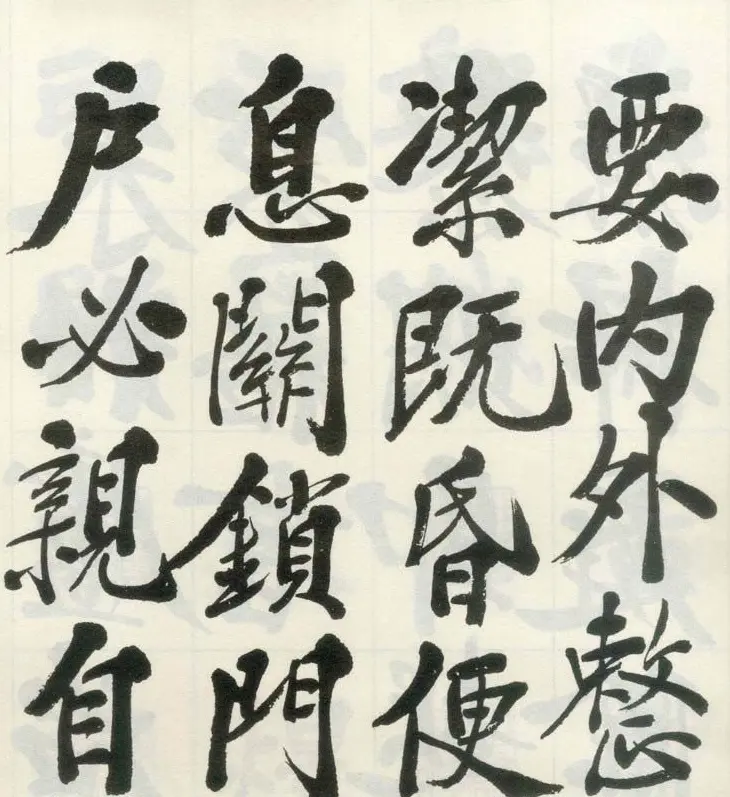 要内外整
潔既昏便
息關鎖門
户必親自